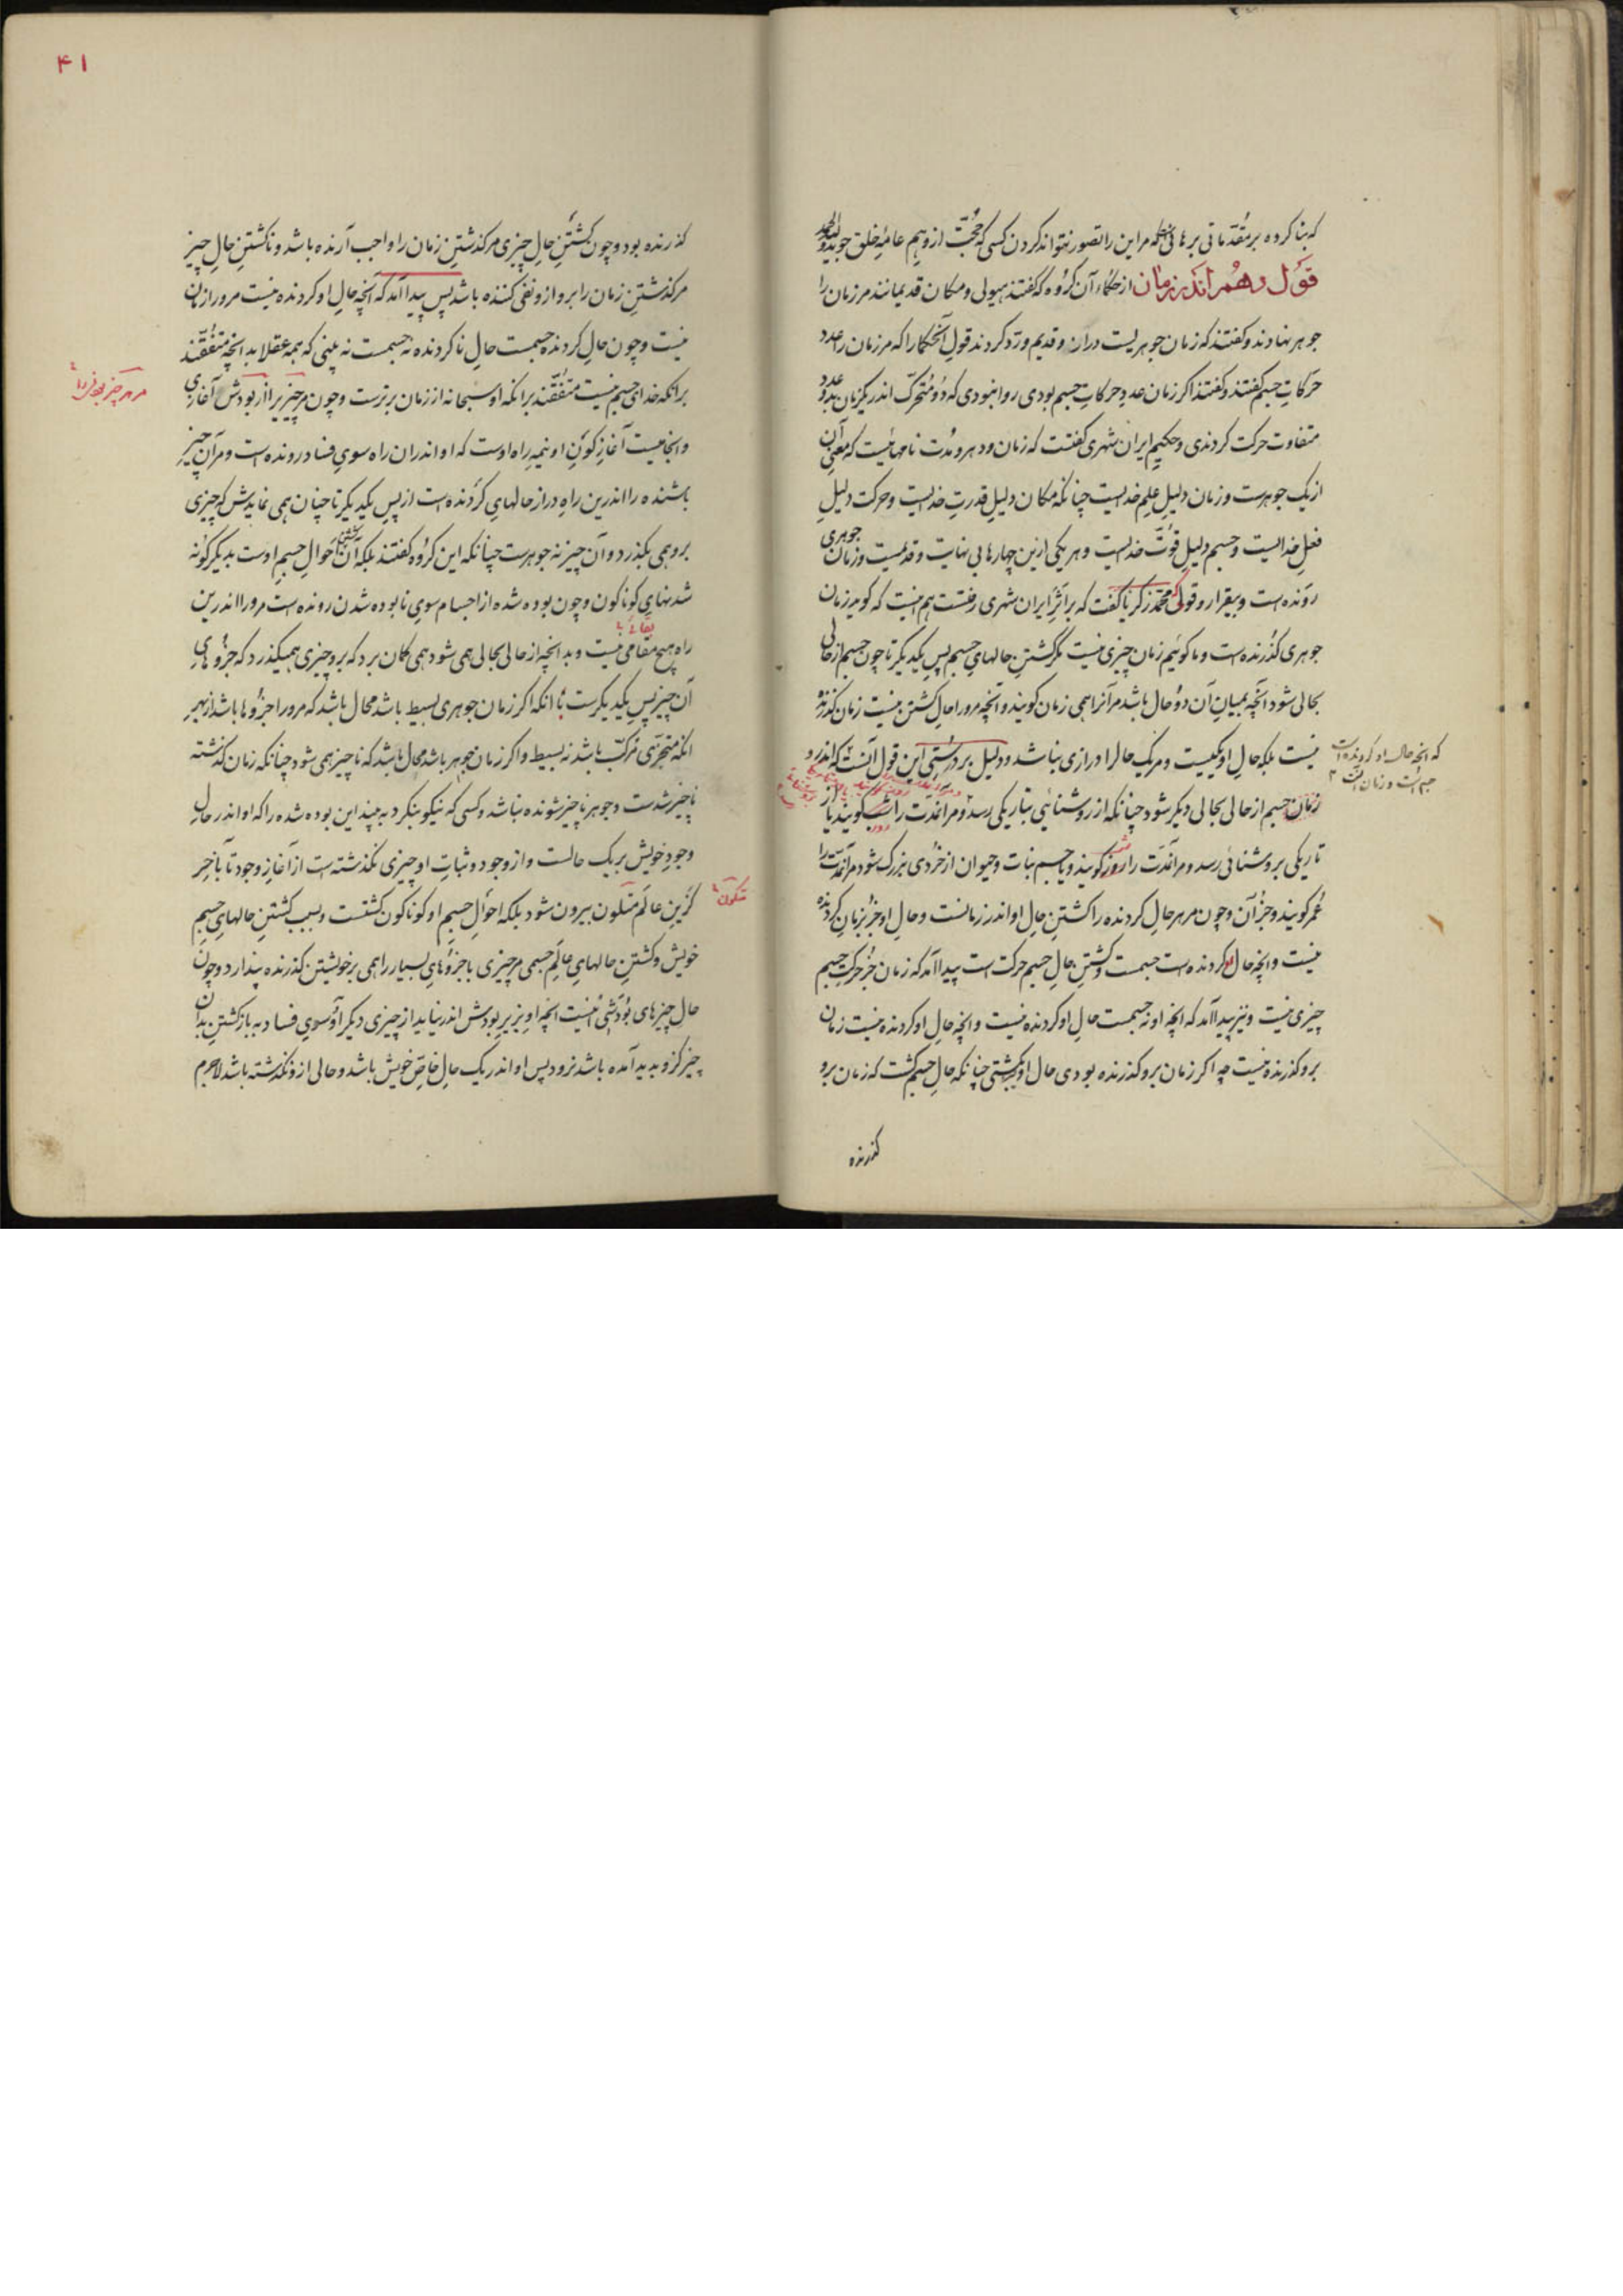 که بنا کرده بر مقدماتی برهانی که مر این را تصور نتواند کردن کسی که حجت از وهم عامه خلق جوید
قول دهم اندر زمان از حکما آن گروه که گفتند هیولی و مکان قدیمانند مر زمان را
جوهر نهادند و گفتند که زمان جوهریست دراز و قدیم و رد کردند قول آن حکما را که مر زمان را عدد
حرکات جسم گفتند و گفتند اگر زمان عدد حرکات جسم بودی روا نبودی که دو متحرک اندر یک زمان بدو عدد
متفاوت حرکت کردندی و حکیم ایران شهری گفتست که زمان و دهر و مدت نامهائیست که معنی آن
از یک جوهرست و زمان دلیل علم خدایست چنانکه مکان دلیل قدرت خدایست و حرکت دلیل
فعل خدایست و جسم دلیل قوت خدایست و هر یکی ازین چهار ها بی نهایت و قدیمست و زمان جوهری
رونده است و بیقرار و قولی که محمد زکریا گفت که بر اثر ایران شهری رفتست هم اینست که گوید زمان
جوهری گذرنده است و ما گوئیم زمان چیزی نیست مگر گشتن حالهای جسم پس یکدیگر تا چون جسم از حالی
بحالی شود آنچه بمیان آن دو حال باشد مر آنرا همی زمان گویند و آنچه مرو را حال گشتن نیست زمان گذرنده
نیست بلکه حال او یکیست و مر یک حالرا درازی نباشد و دلیل بر درستی این قول آنست که اندرو
که آنچه حال او گردنده است
جسم است و زمان
زمان جسم از حالی بحالی دیگر شود چنانکه از روشنائی بتاریکی رسد و مر آنمدت را شب گویند یا از
تاریکی بروشنائی رسد و مر آنمدت را روز گویند و یا جسم نبات و حیوان از خردی بزرگ شود مر آنمدت را
عمر گویند و جز آن و چون مر هر حال گردنده را گشتن حال او اندر زمانست و حال او جز بزمان گردنده
نیست و آنچه حال او گردنده است جسمست و گشتن حال جسم حرکت است پیدا آمد که زمان جز حرکت جسم
چیزی نیست و نیز پیدا آمد که آنچه او نه جسمست حال او گردنده نیست و آنچه حال او گردنده نیست زمان
برو گذرنده نیست چه اگر زمان برو گذرنده بودی حال او بگشتی چنانکه حال جسم گشت که زمان برو
گذرنده
۴۱
گذرنده بود و چون گشتن حال چیزی مر گذشتن زمان را واجب آرنده باشد و ناگشتن حال چیز
مر گذشتن زمان را برو ازو نفی کننده باشد پس پیدا آمد که آنچه حال او گردنده نیست مرو را زمان
نیست و چون حال گردنده جسمست حال ناگردنده نه جسمست نه بینی که همه عقلا بدانچه متفقند
برانکه خدای جسم نیست متفقند برانکه او سبحانه از زمان برترست و چون مر چیزیرا از بودش آغازی
مر هر چیز بودنی را
و انجامیست آغاز کون او نیمه راه اوست که او اندران راه سوی فساد رونده است و مر آن چیز
باشنده را اندرین راه دراز حالهای گردنده است از پس یکدیگر تا چنان همی نمایدش که چیزی
برو همی بگذرد و آن چیز نه جوهرست چنانکه این گروه گفتند بلکه آن گشتن احوال جسم اوست بدیگر گونه
شدنهای گوناگون و چون بوده شده از اجسام سوی نابوده شدن رونده است مرو را اندرین
راه هیچ مقامی نیست و بدانچه از حالی بحالی همی شود همی گمان برد که برو چیزی همیگذرد که جزوهای
آن چیز پس یکدیگرست با آنکه اگر زمان جوهری بسیط باشد محال باشد که مرو را جزوها باشد از بهر
آنکه متجزی مرکب باشد نه بسیط و اگر زمان جوهر باشد محال باشد که ناچیز همی شود چنانکه زمان گذشته
ناچیز شدست و جوهر ناچیز شونده نباشد و کسی که نیکو بنگرد به بیند این بوده شده را که او اندر حال
وجود خویش بر یک حالست و از وجود و ثبات او چیزی نگذشته است از آغاز وجود تا بآخر
کزین عالم متلون بیرون شود بلکه احوال جسم او گوناگون گشتست و بسبب گشتن حالهای جسم
متکون
خویش و گشتن حالهای عالم جسمی مر چیزی با جزوهای بسیار را همی بر خویشتن گذرنده پندارد و چون
حال چیزهای بودشی اینست آنچه او بزیر بودش اندر نیاید از چیزی دیگر او سوی فساد به بازگشتن بدان
چیز کزو بدید آمده باشد نرود پس او اندر یک حال خاص خویش باشد و حالی ازو نگذشته باشد لاجرم